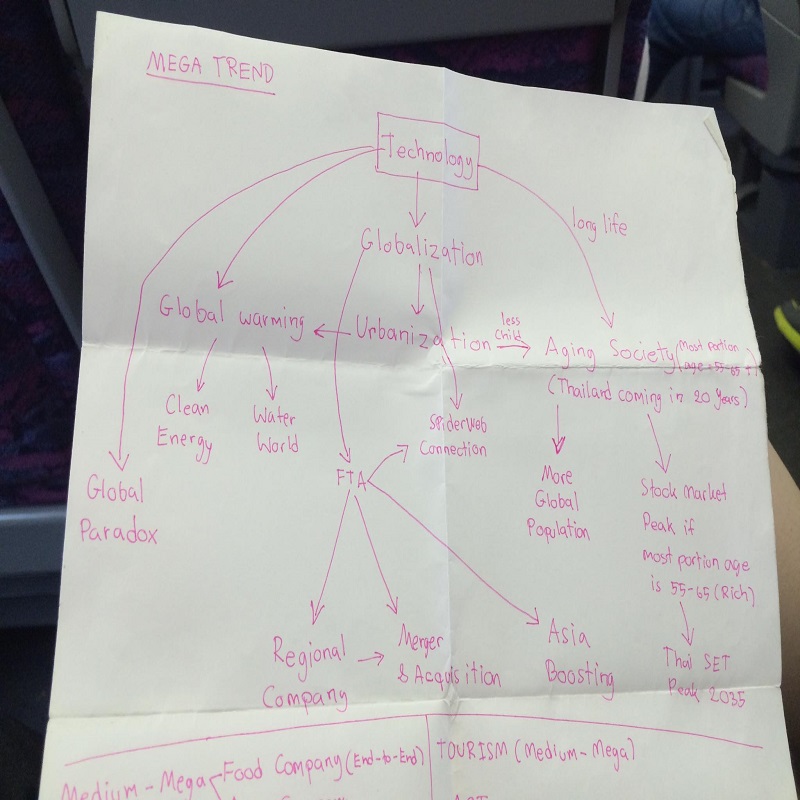 MEGA TREND
Technology
long life
Globalization
Global warming
Urbanization
less
child
Aging Society (most portion
age = 55-65 +)
(Thailand coming in 20 years)
Clean
Energy
Water
World
Spiderweb
Connection
FTA
Global
Paradox
More
Global
Population
Stock market
Peak if
most portion age
is 55-65 (Rich)
Regional
Company
Merger
& Acquisition
Asia
Boosting
Thai SET
Peak 2035
Medium-Mega
Food Company (End-to-End)
TOURISM (Medium-Mega)